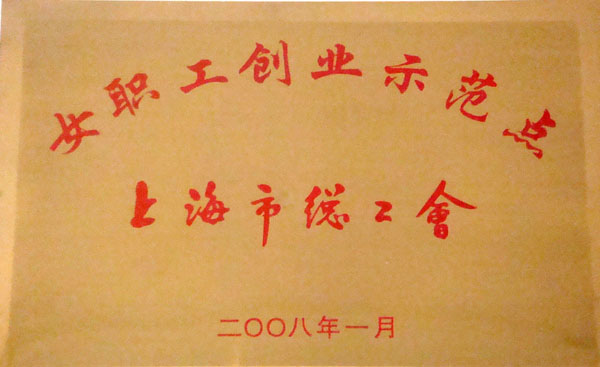 女职工创业示范点
上海市總工會
二〇〇八年一月